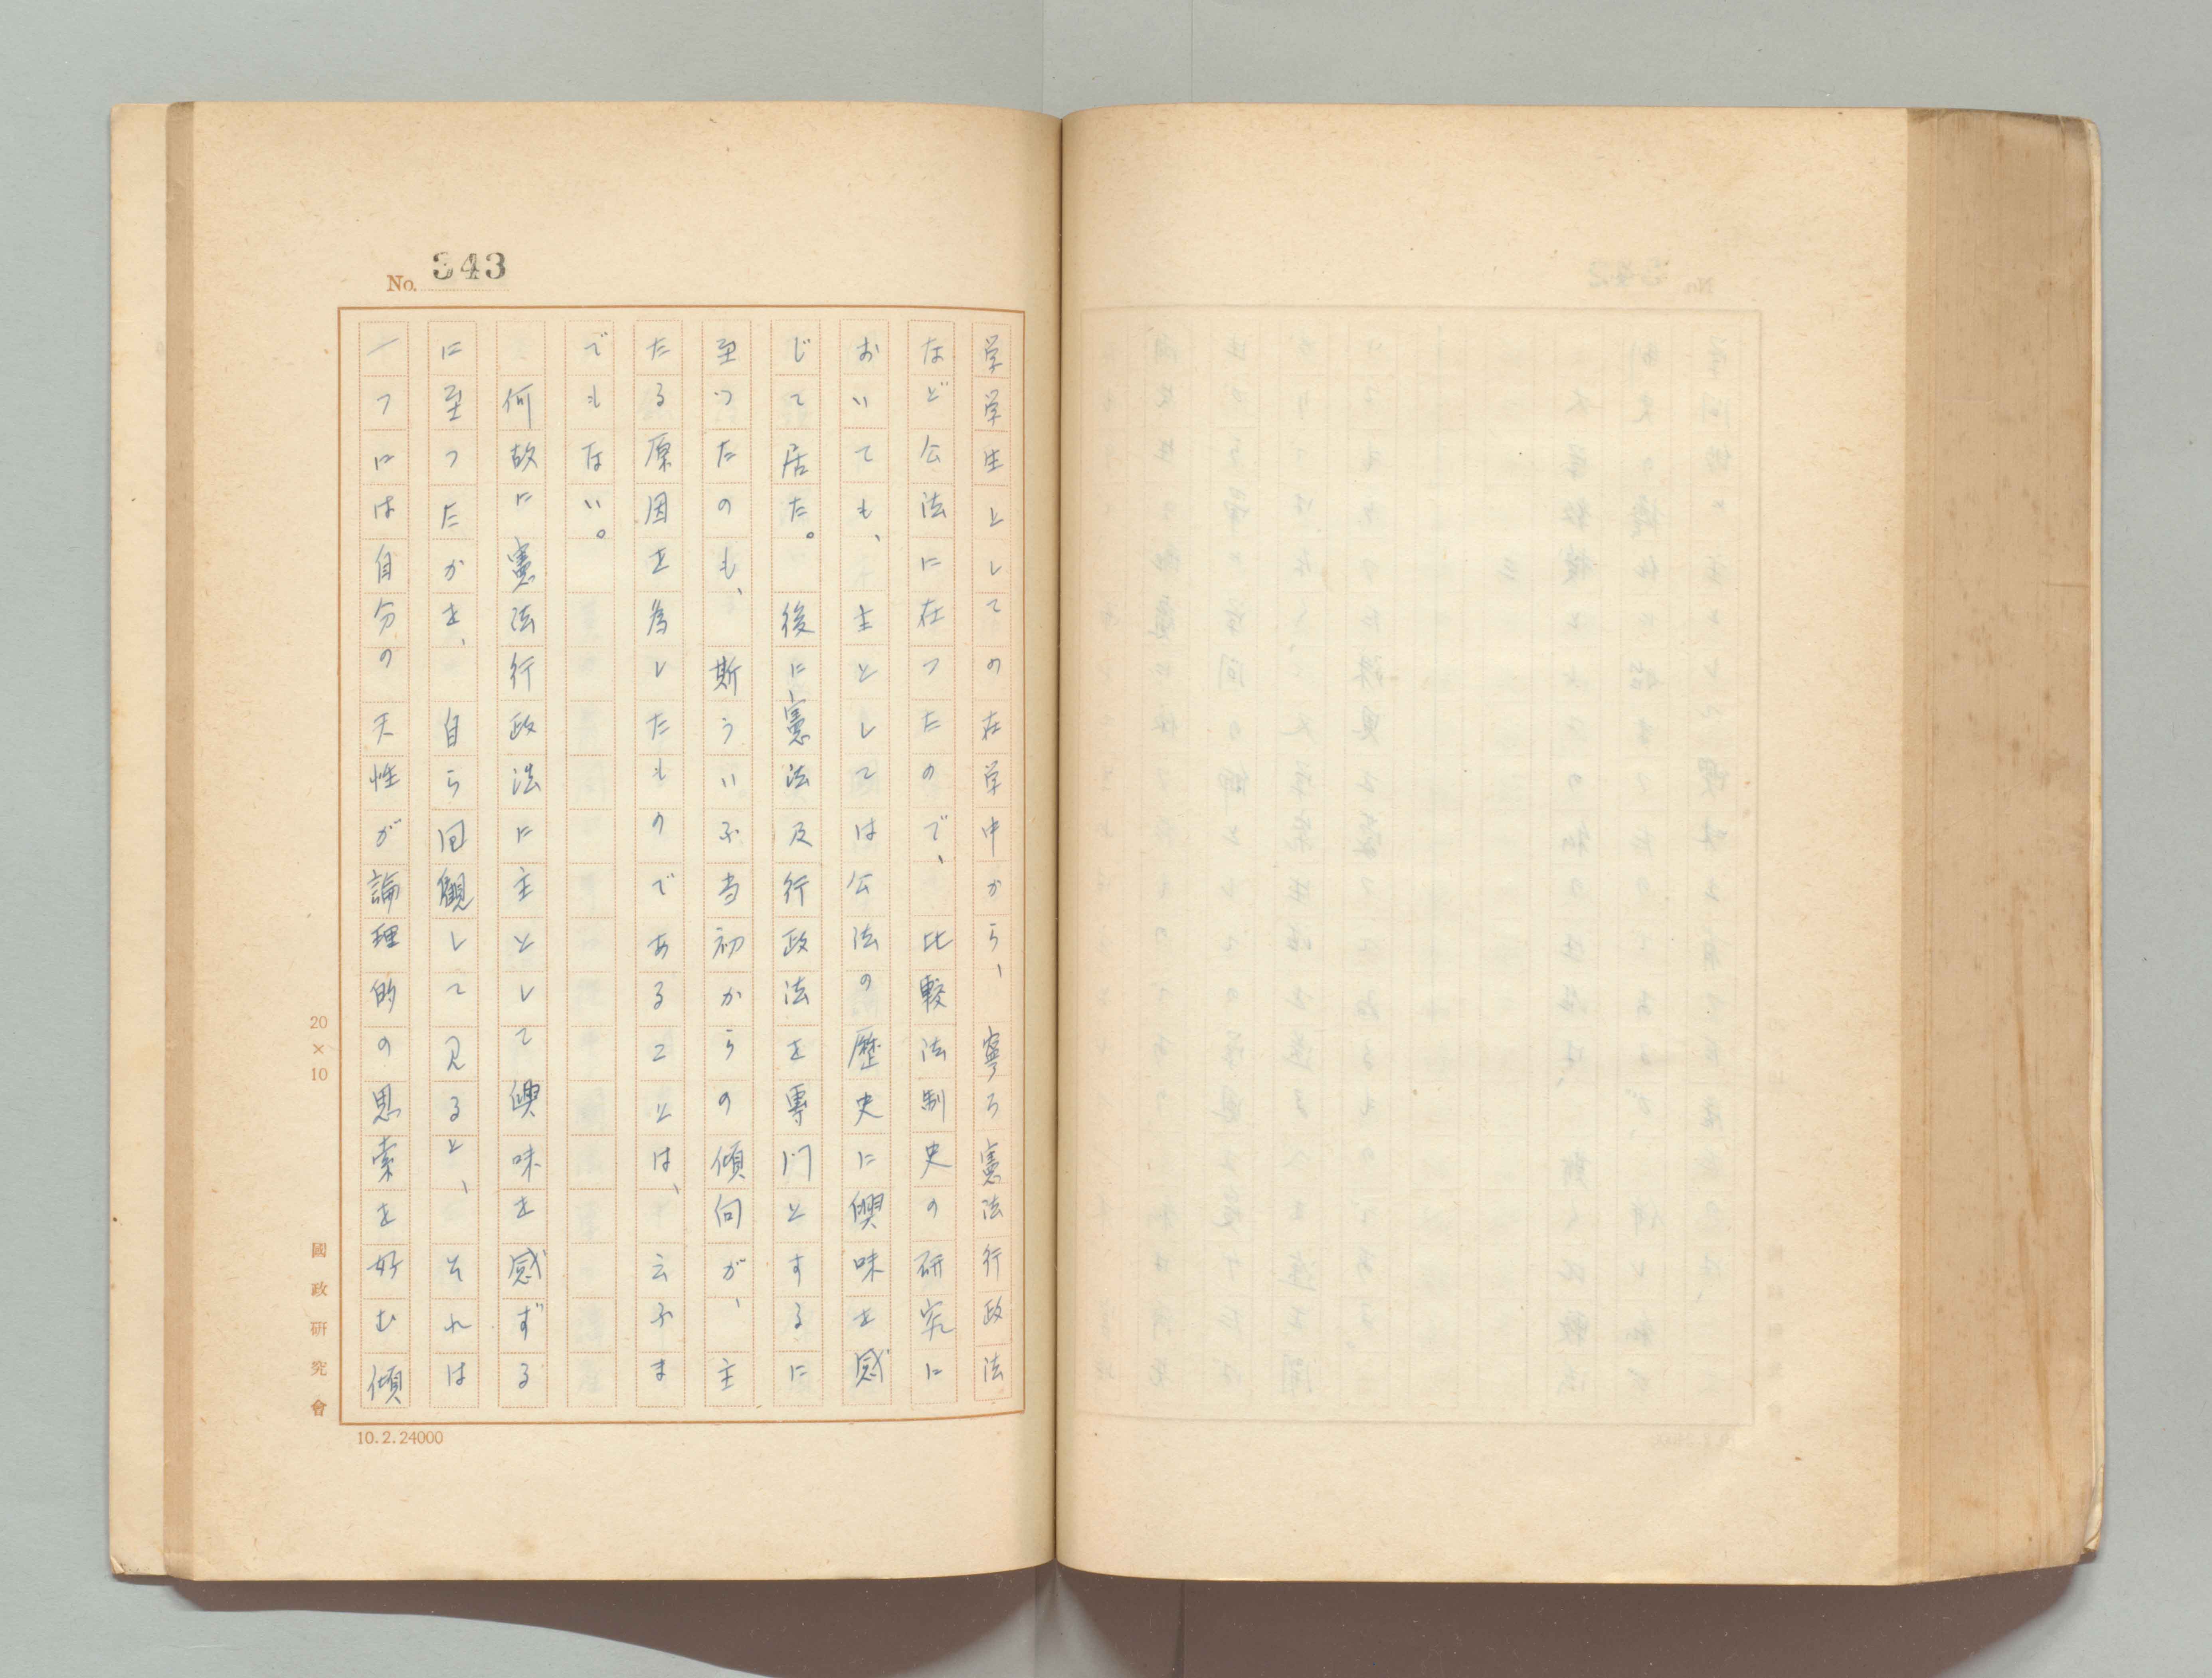 No. 343
学学生としての在学中から、寧ろ憲法行政法
など公法に在つたので、比較法制史の研究に
おいても、主としては公法の歴史に興味を感
じて居た。後に憲法及行政法を専門とするに
至つたのも、斯ういふ当初からの傾向が、主
たる原因を為したものであることは、云ふま
でもない。
何故に憲法行政法に主として興味を感ずる
に至つたかを、自ら回観して見ると、それは
一つには自分の天性が論理的の思索を好む傾
20×10
國政研究會
10.2.24000